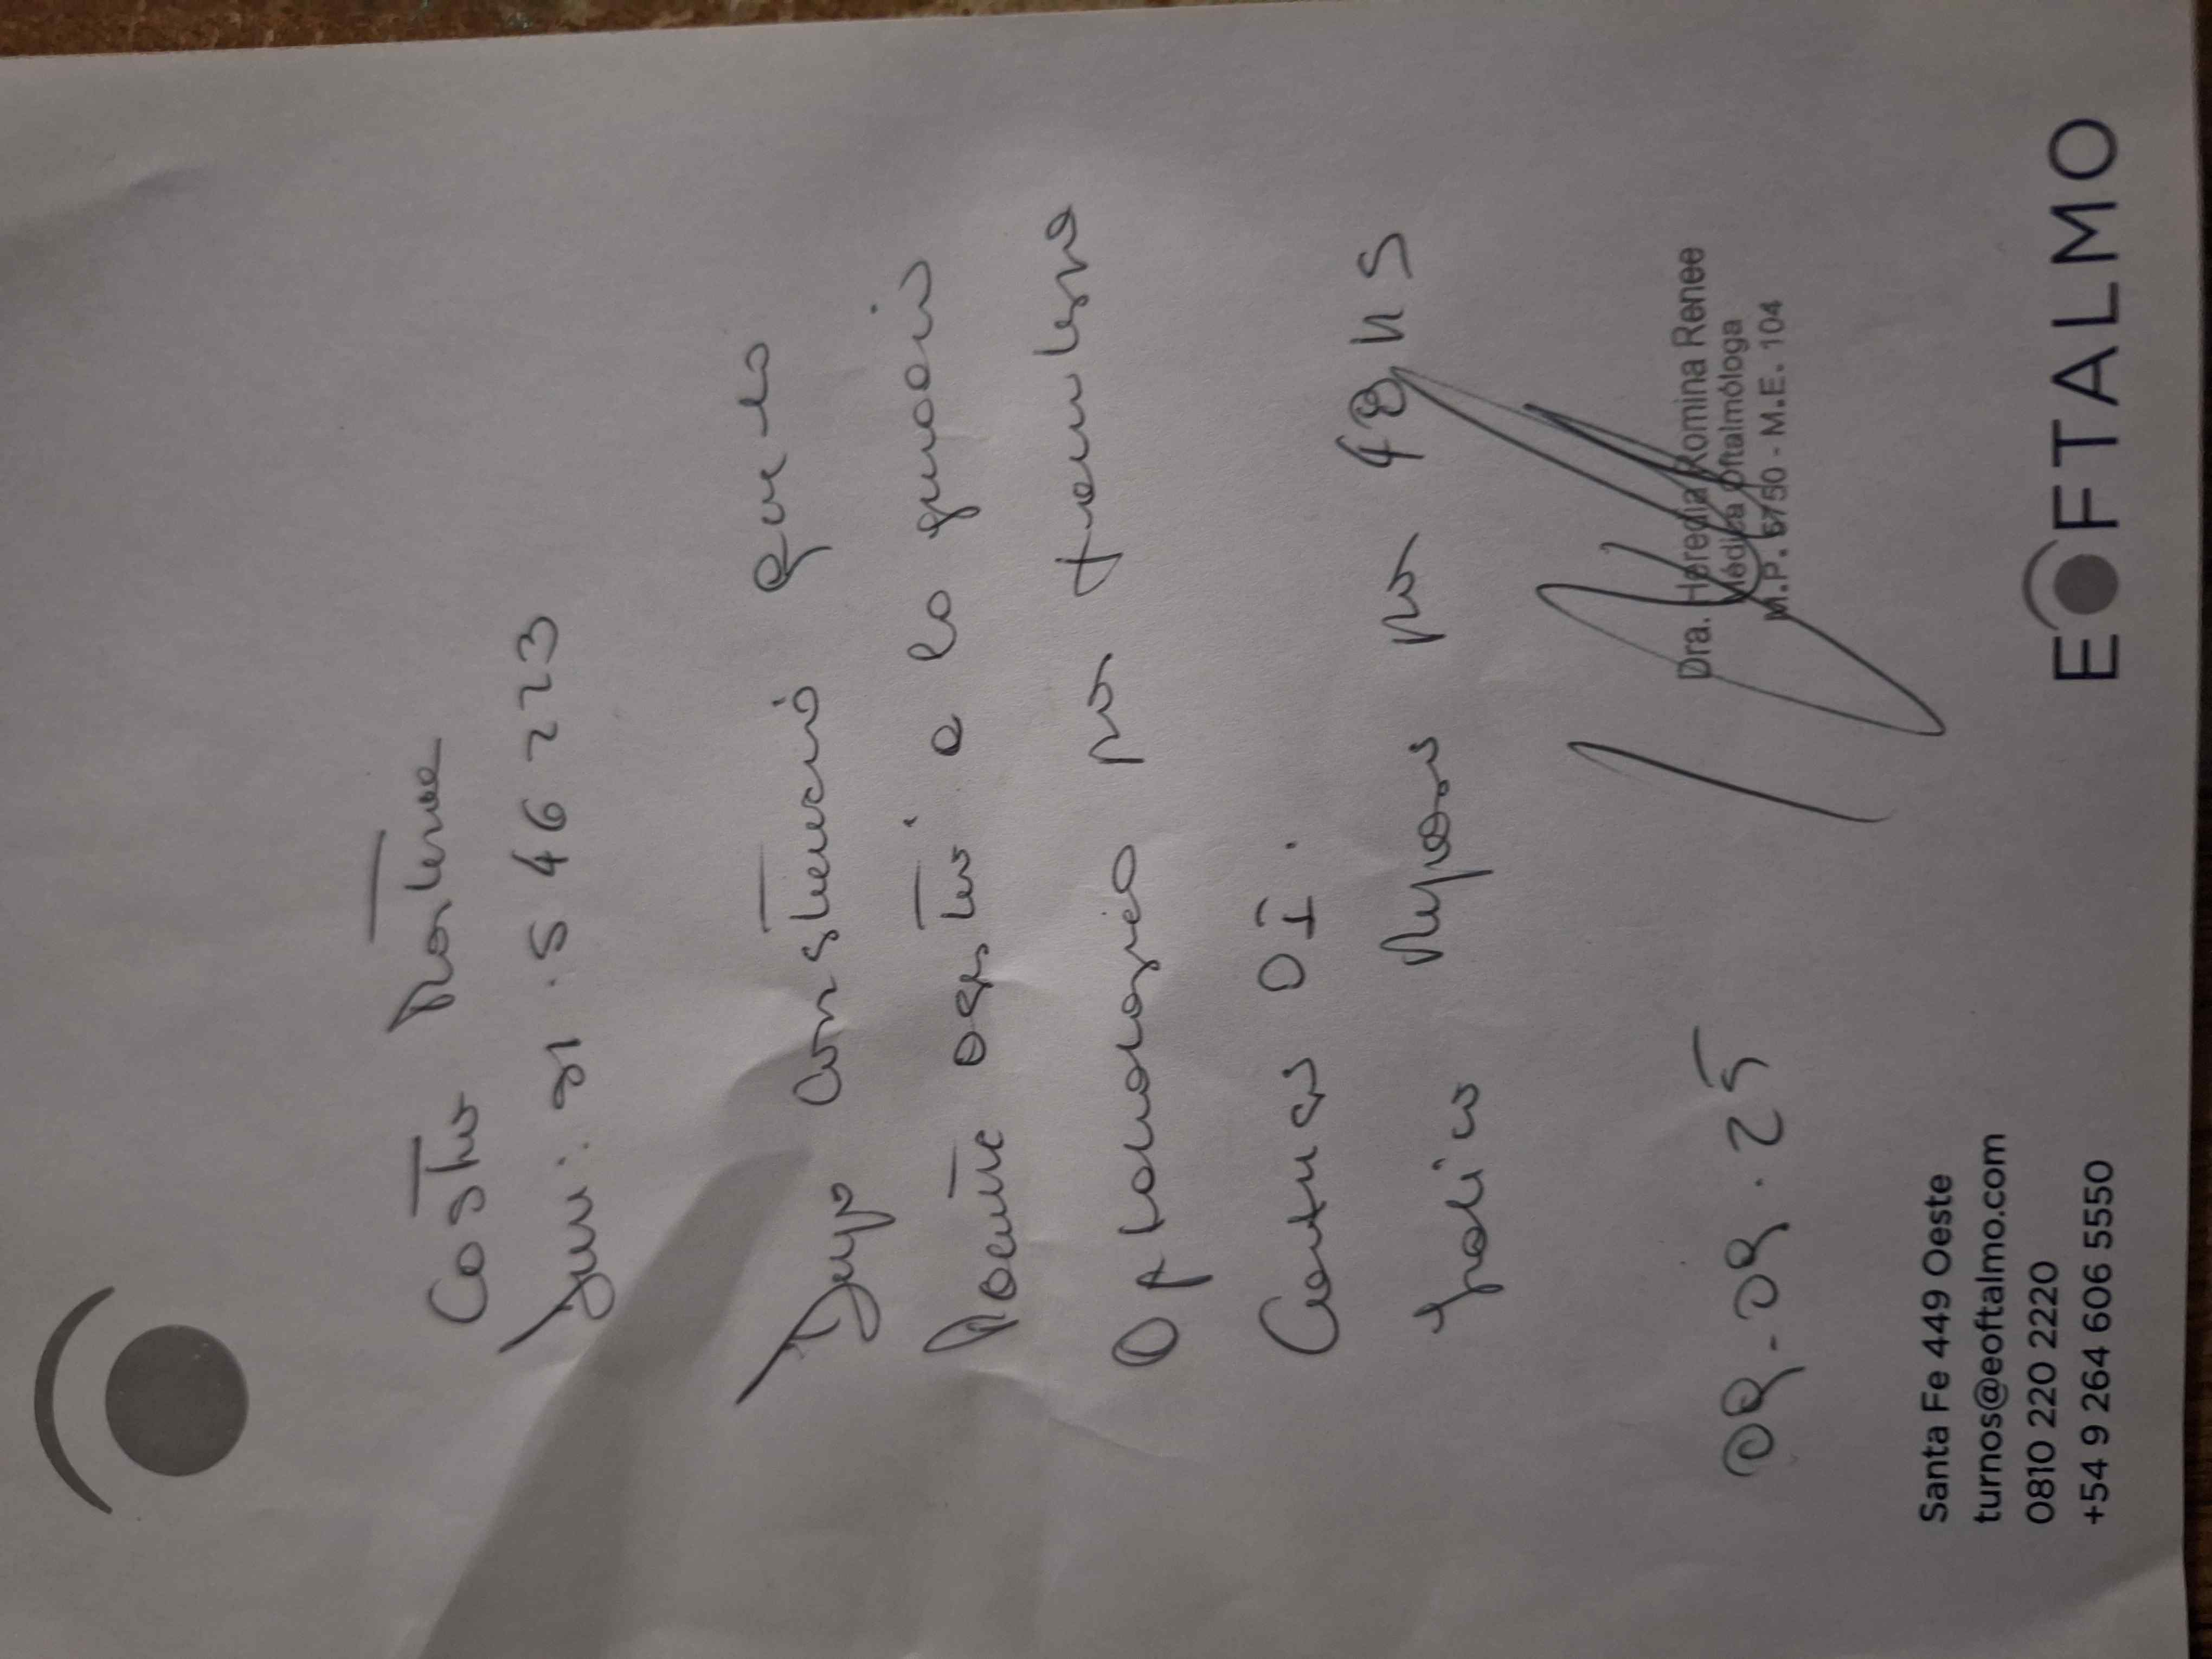 Castro Marlene
DNI: 31.546223
Dejo constancia que la
Paciente asistió a la guardia
Oftalmologica por
Cortes OI.
Indico Reposo por 48 HS
09-09.25
Dra. Heredia Romina Renee
Médica Oftalmóloga
M.P. 5750 - M.E. 104
Santa Fe 449 Oeste
turnos@eoftalmo.com
0810 220 2220
+54 9 264 606 5550
EOFTALMO